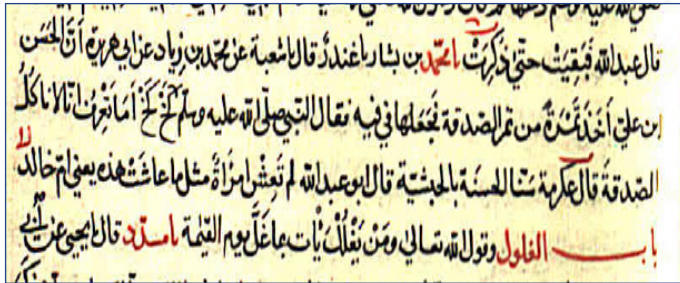 قال عبد الله فَبَقِيَتْ حتّى ذَكَرَتْ نا محمّد بن بشار نا غندرٌ قال نا شعبة عن محمّد بن زياد عن ابي هريرة انّ الحَسَن
ابن عليّ أَخَذَ تَمْرَةً من تمر الصّدقة فَجَعَلها في فيه فقال النّبي صلّى الله عليه وسلّم كَخْ كَخْ أمَا تَعْرِفُ انّا لا نأكلُ
الصّدقةَ قال عكرمة سَنَا الحسنة بالحبشيّة قال ابو عبد الله لم تَعِشْ امرَاَةٌ مثل ما عاشَتْ هذه يعني امّ خالد
باب الغلول وقول الله تعالى وَمَنْ يَغْلُلْ يَأْتِ بما غَلَّ يوم القيمة نا مسدّد قال نا يحيى عن أبي